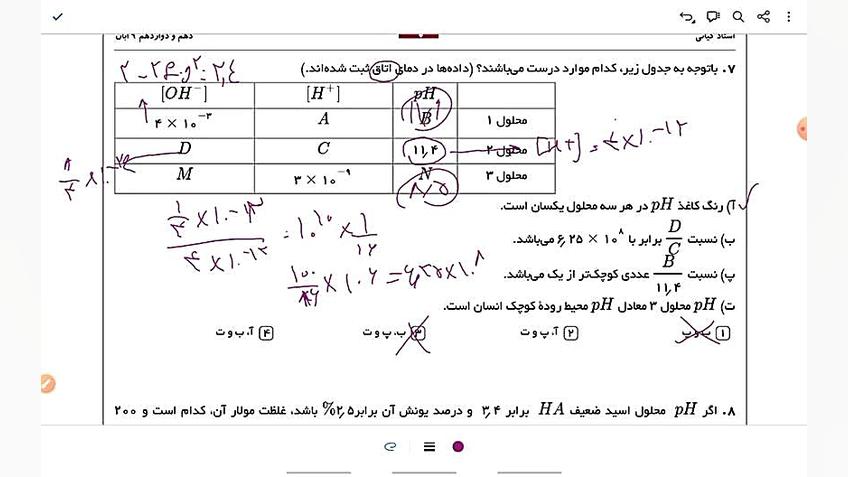 استاد کیانی
دهم و دوازدهم ۹ آبان
۷. باتوجه به جدول زیر، کدام موارد درست می‌باشند؟ (داده‌ها در دمای اتاق ثبت شده‌اند.)
pH [H⁺] [OH⁻]
محلول ۱ B A ۴ × ۱۰⁻³
محلول ۲ ۱۱٫۴ C D
محلول ۳ N ۳ × ۱۰⁻⁹ M
آ) رنگ کاغذ pH در هر سه محلول یکسان است.
ب) نسبت D/C برابر با ۶٫۲۵ × ۱۰⁸ می‌باشد.
پ) نسبت B/۱۱٫۴ عددی کوچک‌تر از یک می‌باشد.
ت) pH محلول ۳ معادل pH محیط رودهٔ کوچک انسان است.
۱ ۲ آ، پ و ت ۳ ب، پ و ت ۴ آ، ب و ت
۸. اگر pH محلول اسید ضعیف HA برابر ۳٫۴ و درصد یونش آن برابر ۲٫۵% باشد، غلظت مولار آن، کدام است و ۲۰۰